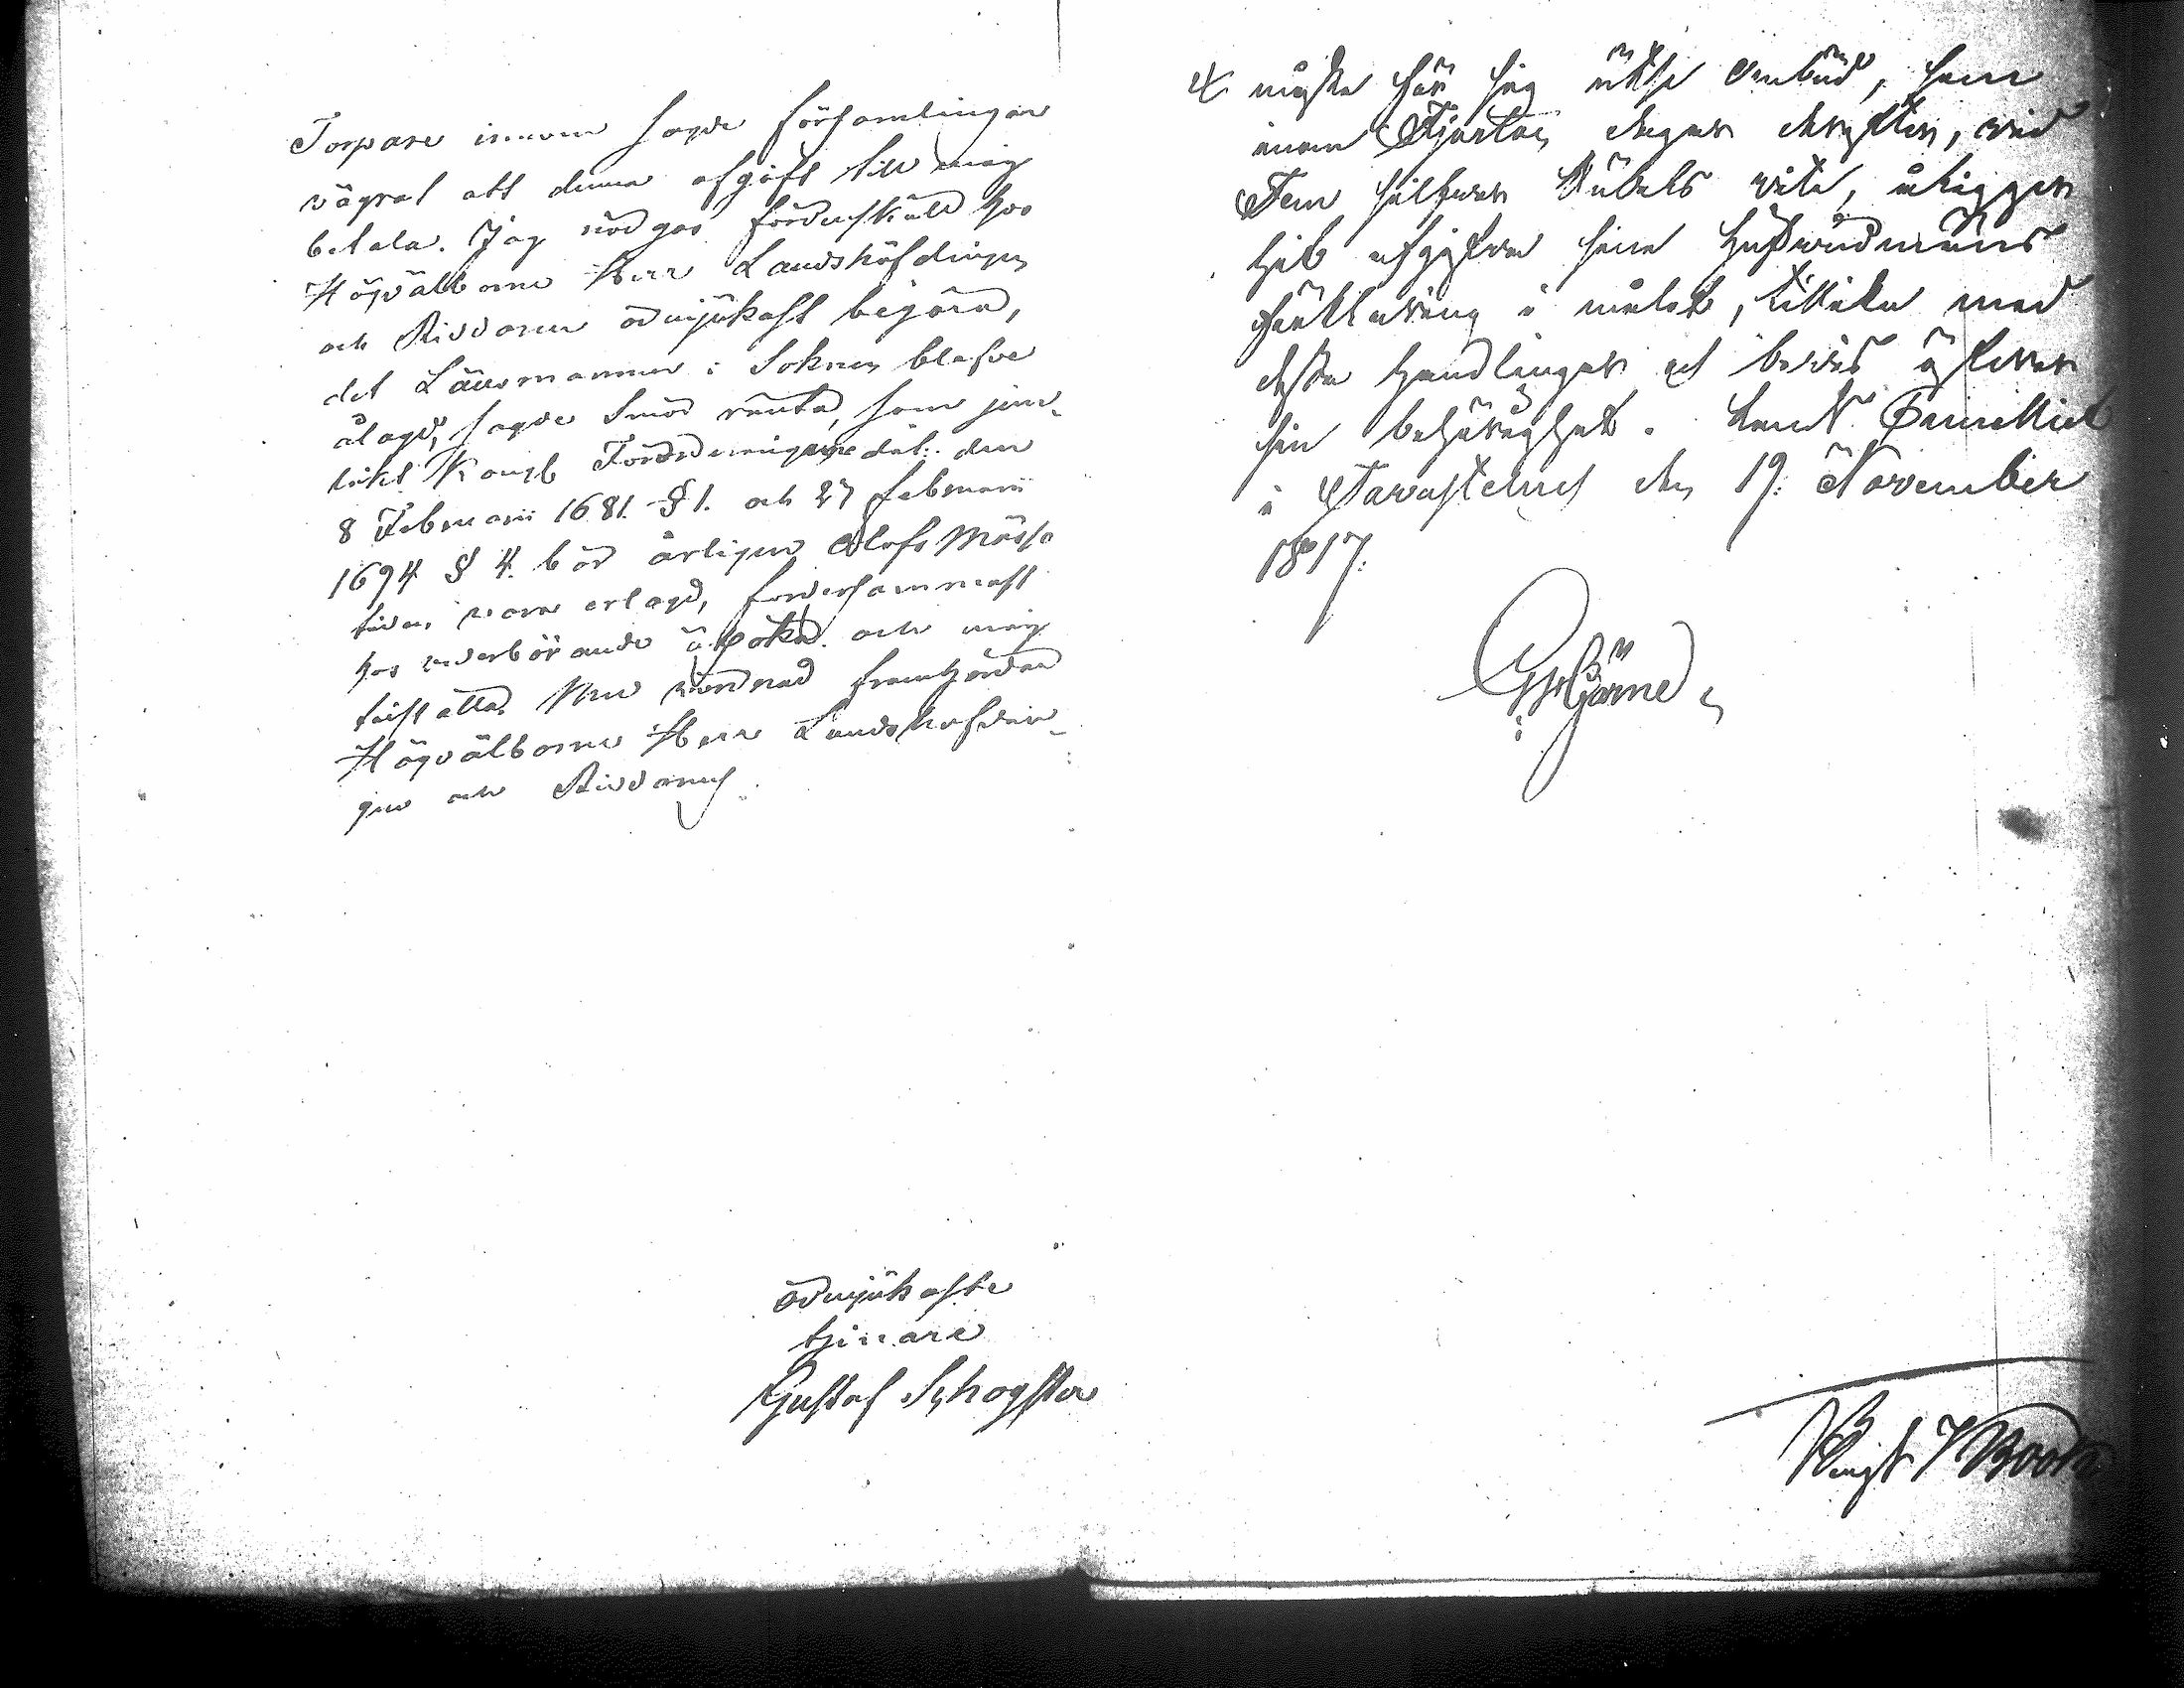 Torpare innom sagde församlingar
vägrat att denna afgift till mig
betala. Jag nödgas fördenskuld hos
Högvälborne Herr Landshöfdingen
och Riddaren ödmjukast begära,
det Länsmannen i Soknen blefve
ålagd, sagde Smör ränta, som jem-
likt Kongl Förordningarne dat: den
8 Februarii 1681. § 1. och 27 Februarii
1694 § 4. bör årligen Olofs Mässo
tiden vara erlagd, fordersammast
hos vederbörande utsöka och mig
tillställa. Med vördnad framhärdar
Högvälborne Herr Landshöfdin-
gen och Riddarens
ödmjukaste
tjenare
Gustaf
måste för sig utse Ombud, som
inom Fjorton dagar derefter, vid
Fem silfver Rubels vite, åligger
hit afgifva sine Hufvudmäns
förklaring i målet, tillika med
desse handlingar och bevis öfver
sin behörighet. Lands Canselliet
i Tavastehus den 19. November
1817.
Bengt